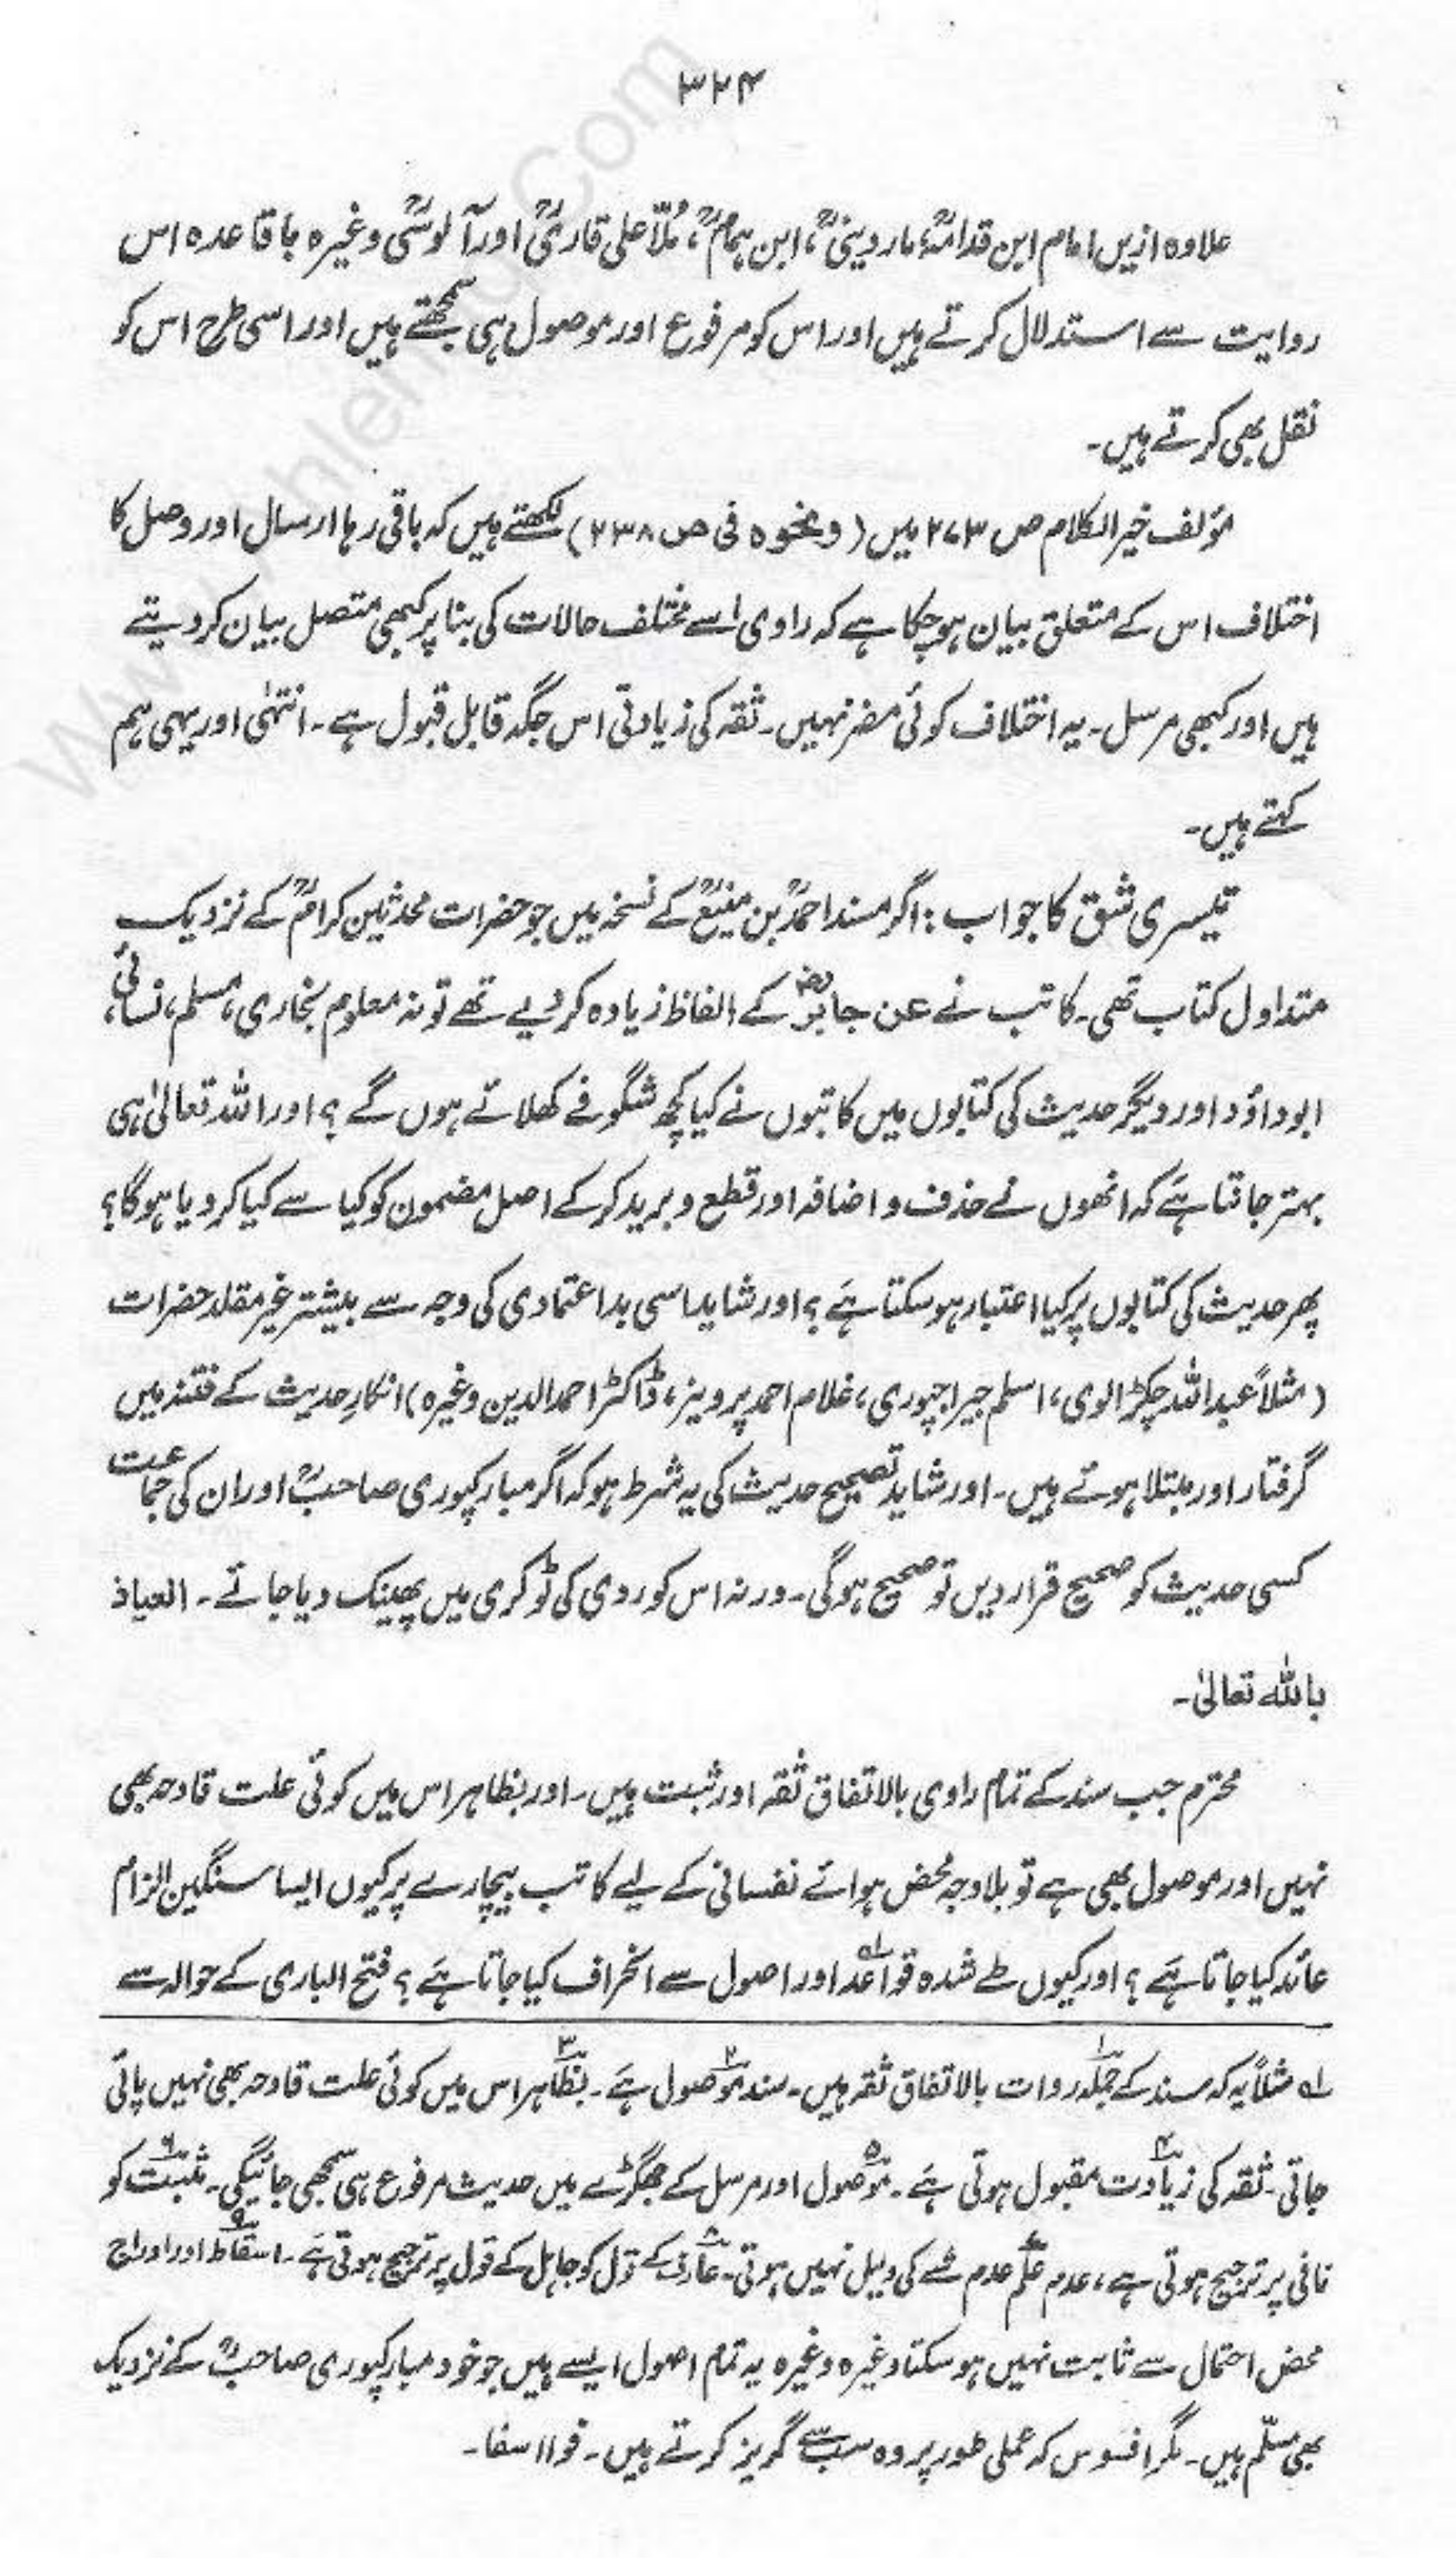 ۳۲۴
علاوہ ازیں امام ابن قدامہؒ، ماردینیؒ، ابن ہمامؒ، مُلّا علی قاریؒ اور آلوسیؒ وغیرہ باقاعدہ اس
روایت سے استدلال کرتے ہیں اور اس کو مرفوع اور موصول ہی سمجھتے ہیں اور اسی طرح اس کو
نقل بھی کرتے ہیں۔
مؤلف خیر الکلام ص ۲۷۳ میں (ونحوہ فی ص ۲۳۸) لکھتے ہیں کہ باقی رہا ارسال اور وصل کا
اختلاف اس کے متعلق بیان ہو چکا ہے کہ راوی اسے مختلف حالات کی بنا پر کبھی متصل بیان کر دیتے
ہیں اور کبھی مرسل۔ یہ اختلاف کوئی مضر نہیں۔ ثقہ کی زیادتی اس جگہ قابل قبول ہے۔ انتہٰی اور یہی ہم
کہتے ہیں۔
تیسری شق کا جواب: اگر مسند احمدؒ بن منیعؒ کے نسخہ میں جو حضرات محدثین کرامؒ کے نزدیک
متداول کتاب تھی۔ کاتب نے عن جابرؓ کے الفاظ زیادہ کر دیے تھے تو نہ معلوم بخاری، مسلم، نسائی،
ابوداؤد اور دیگر حدیث کی کتابوں میں کاتبوں نے کیا کچھ شگوفے کھلائے ہوں گے؟ اور اللہ تعالیٰ ہی
بہتر جانتا ہے کہ انھوں نے حذف و اضافہ اور قطع و برید کر کے اصل مضمون کو کیا سے کیا کر دیا ہوگا؟
پھر حدیث کی کتابوں پر کیا اعتبار ہو سکتا ہے؟ اور شاید اسی بد اعتمادی کی وجہ سے بیشتر غیر مقلد حضرات
(مثلاً عبداللہ چکڑالوی، اسلم جیراجپوری، غلام احمد پرویز، ڈاکٹر احمد الدین وغیرہ) انکارِ حدیث کے فتنہ میں
گرفتار اور مبتلا ہوئے ہیں۔ اور شاید تصحیح حدیث کی یہ شرط ہو کہ اگر مبارکپوری صاحبؒ اور ان کی جماعت
کسی حدیث کو صحیح قرار دیں تو صحیح ہوگی۔ ورنہ اس کو ردی کی ٹوکری میں پھینک دیا جائے۔ العیاذ
باللہ تعالیٰ۔
محترم جب سند کے تمام راوی بالاتفاق ثقہ اور ثبت ہیں۔ اور بظاہر اس میں کوئی علت قادحہ بھی
نہیں اور موصول بھی ہے تو بلاوجہ محض ہوائے نفسانی کے لیے کاتب بیچارے پر کیوں ایسا سنگین الزام
عائد کیا جاتا ہے؟ اور کیوں طے شدہ قواعد۱؎ اور اصول سے انحراف کیا جاتا ہے؟ فتح الباری کے حوالہ سے
۱؎ مثلاً یہ کہ سند کے جملہ۱ روات بالاتفاق ثقہ ہیں۔ سند موصول۲ ہے۔ بظاہر۳ اس میں کوئی علت قادحہ بھی نہیں پائی
جاتی۔ ثقہ کی زیادت۴ مقبول ہوتی ہے۔ موصول۵ اور مرسل کے جھگڑے میں حدیث مرفوع ہی سمجھی جائیگی۔ مثبت۶ کو
نافی پر ترجیح ہوتی ہے، عدم علم۷ عدم شے کی دلیل نہیں ہوتی۔ عارف۸ کے قول کو جاہل کے قول پر ترجیح ہوتی ہے۔ اسقاط۹ اور ادراج
محض احتمال سے ثابت نہیں ہو سکتا وغیرہ وغیرہ یہ تمام اصول ایسے ہیں جو خود مبارکپوری صاحبؒ کے نزدیک
بھی مسلّم ہیں۔ مگر افسوس کہ عملی طور پر وہ سب سے گریز کرتے ہیں۔ فوااسفا۔